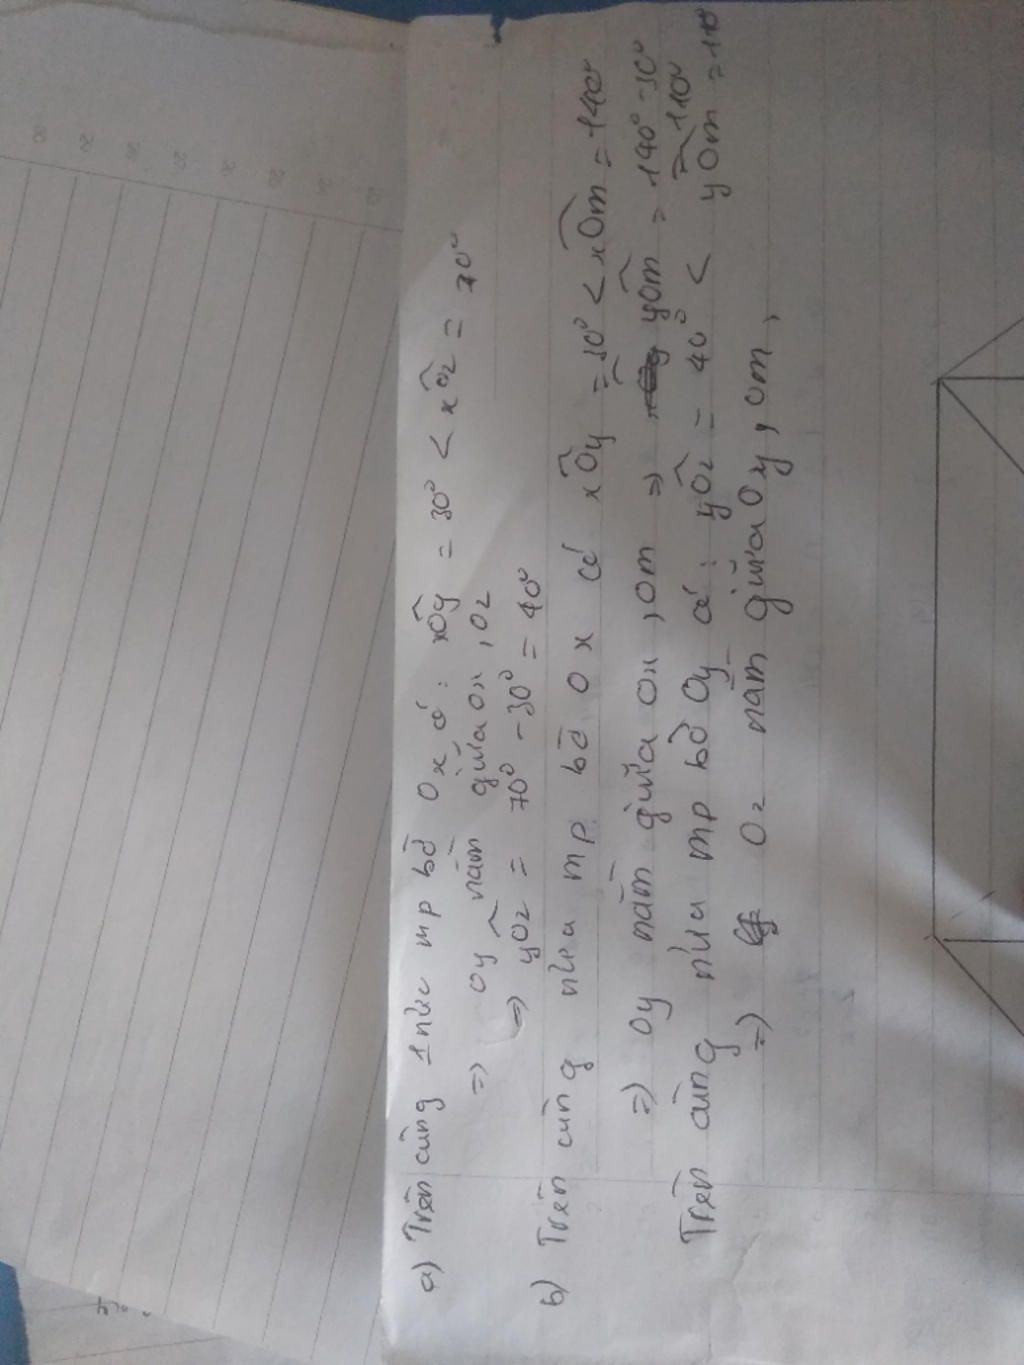 a) Trên cùng 1 nửa mp bờ Ox có: xÔy = 30° < xÔz = 70°
=> Oy nằm giữa Ox, Oz
=> yOz = 70° - 30° = 40°
b) Trên cùng nửa mp bờ Ox có xÔy = 30° < xÔm = 140°
=> Oy nằm giữa Ox, Om => yÔm = 140° - 30° = 110°
Trên cùng nửa mp bờ Oy có: yÔz = 40° < yÔm = 110°
=> Oz nằm giữa Oy, Om,